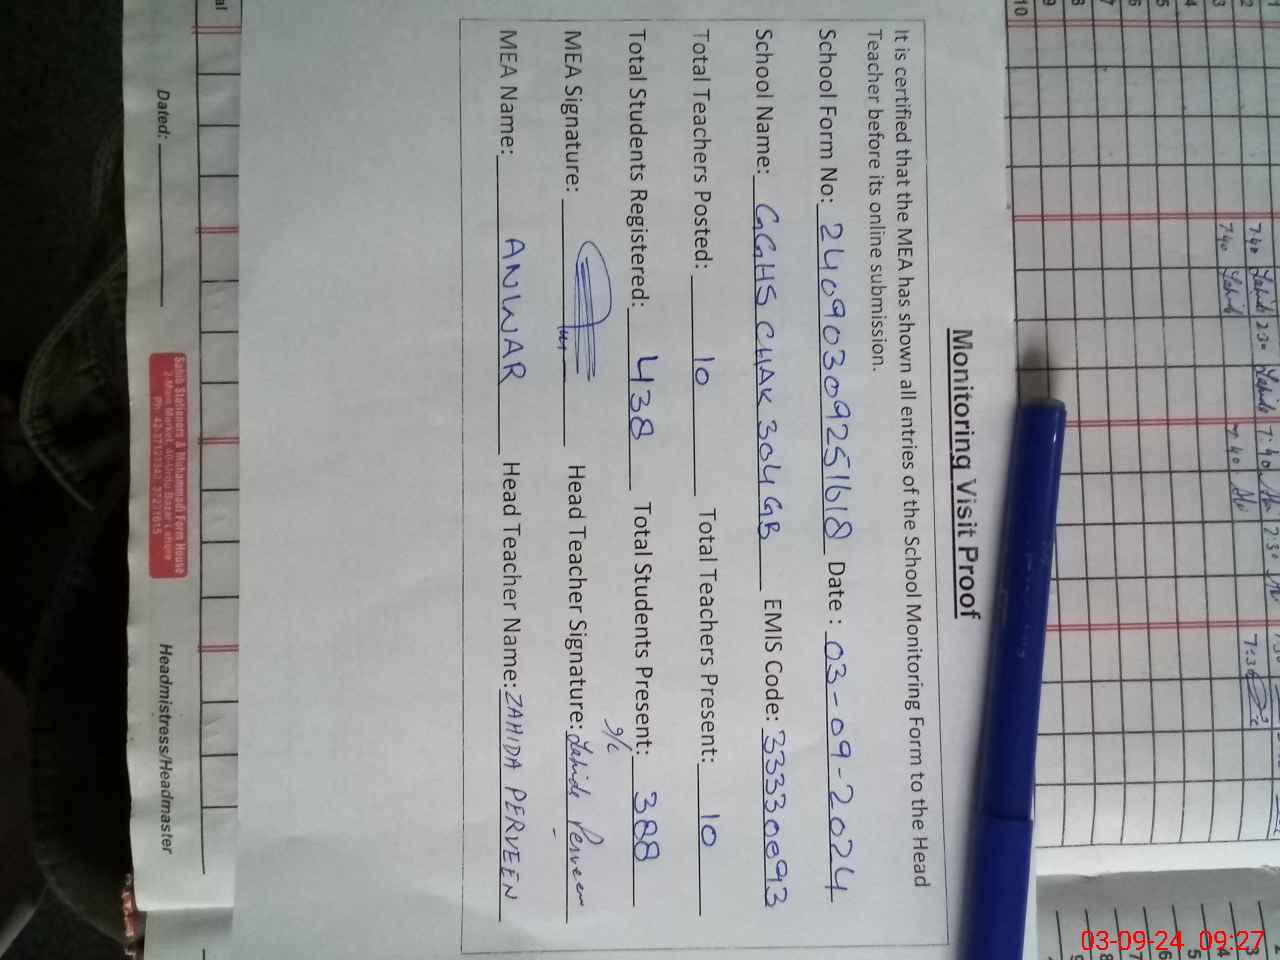 Monitoring Visit Proof
It is certified that the MEA has shown all entries of the School Monitoring Form to the Head
Teacher before its online submission.
School Form No: 24090309251618 Date : 03-09-2024
School Name: GGHS CHAK 304 GB EMIS Code: 33330093
Total Teachers Posted: 10 Total Teachers Present: 10
Total Students Registered: 438 Total Students Present: 388
MEA Signature: Head Teacher Signature: Zahida Perveen
MEA Name: ANWAR Head Teacher Name: ZAHIDA PERVEEN
Dated: Headmistress/Headmaster
Salib Stationers & Muhammadi Form House
2-Main Market, 40-Urdu Bazar Lahore
1
2
3
4
5
6
7
8
9
10
7:40
7:40
2:30
7:40
7:40
7:30
7:30
03-09-24 09:27